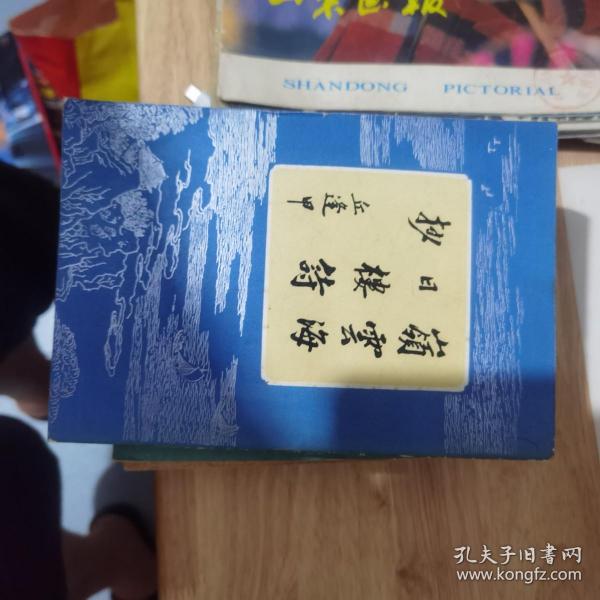 山东画报
SHANDONG PICTORIAL
嶺雲海
日樓詩
鈔
丘逢甲
孔夫子旧书网
www.kongfz.com